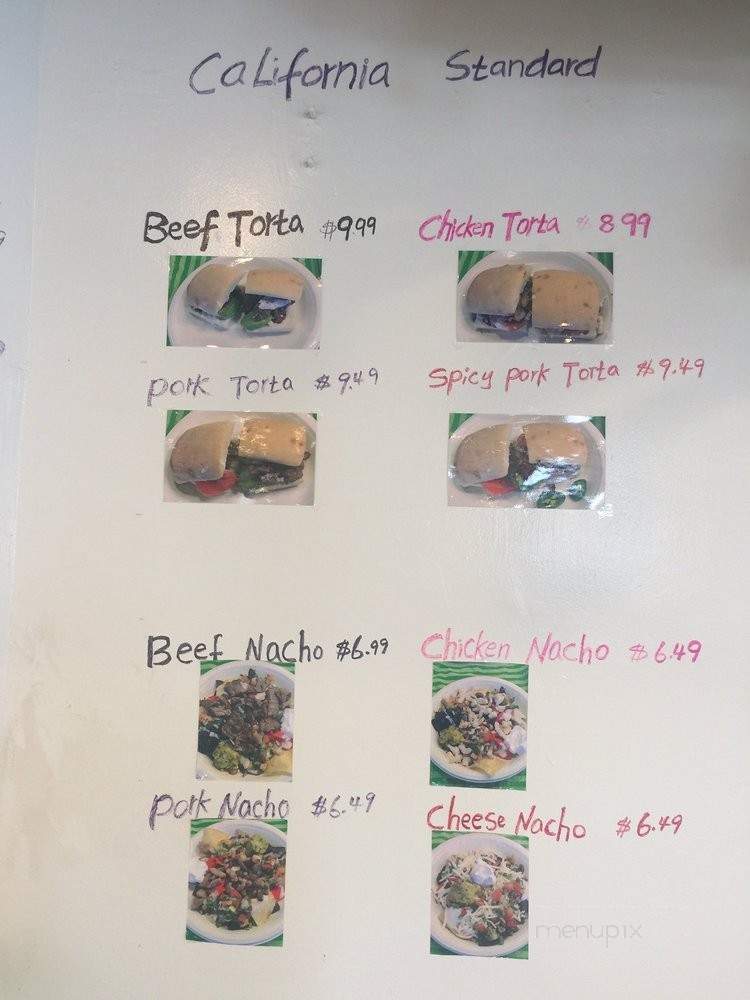 California Standard
Beef Torta $9.99
Chicken Torta $8.99
pork Torta $9.49
Spicy pork Torta $9.49
Beef Nacho $6.99
Chicken Nacho $6.49
pork Nacho $6.49
Cheese Nacho $6.49
menupix